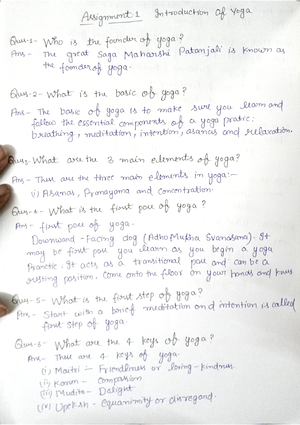 Assignment 1 Introduction of Yoga
Ques-1- Who is the founder of yoga?
Ans- The great Saga Maharshi Patanjali is known as
the founder of yoga.
Ques-2- What is the basic of yoga?
Ans- The basic of yoga is to make sure you learn and
follow the essential components of a yoga pratic:
breathing, meditation, intention, asanas and relaxation.
Ques-3 What are the 3 main elements of yoga?
Ans- These are the three main elements in yoga:-
i) Asanas, Pranayama and Concentration.
Ques-4- What is the first pose of yoga?
Ans- first pose of yoga-
Downward-Facing dog (Adho Mukha Svanasana)- It
may be first pose you learn as you begin a yoga
practice. It acts as a transitional pose and can be a
resting position. Come onto the floor on your hands and knees
Ques-5- What is the first step of yoga?
Ans- Start with a brief meditation and intention is called
first step of yoga
Ques-6- What are the 4 keys of yoga?
Ans- These are 4 keys of yoga
(i) Maitri :- Friendliness or loving-kindness
(ii) Karun - Compassion
(iii) Mudita- Delight
(iv) Upeksh- Equanimity or disregard.